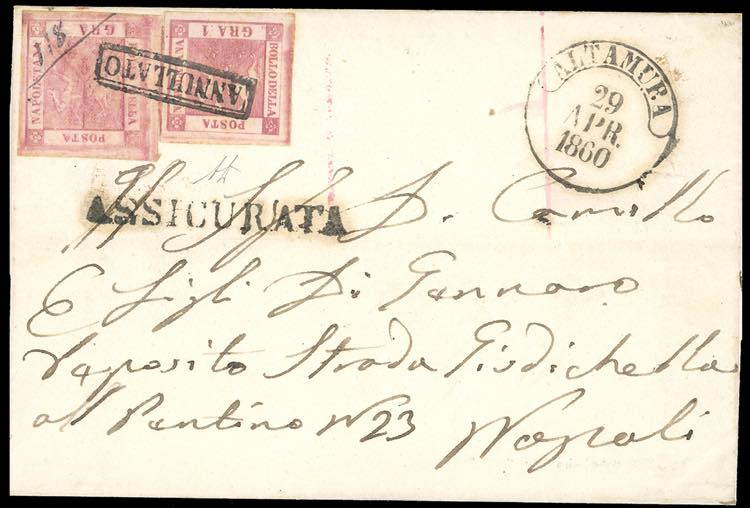 118
GRA
NAPOLETANA
DELLA
POSTA
GRA. 1
BOLLO DELLA
POSTA
ANNULLATO
ALTAMURA
29
APR.
1860
ASSICURATA
D. Camillo
E Figli Di Gennaro
Deposito Strada
al Pontino N 23 Napoli